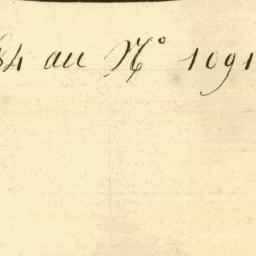 84 au N° 1091